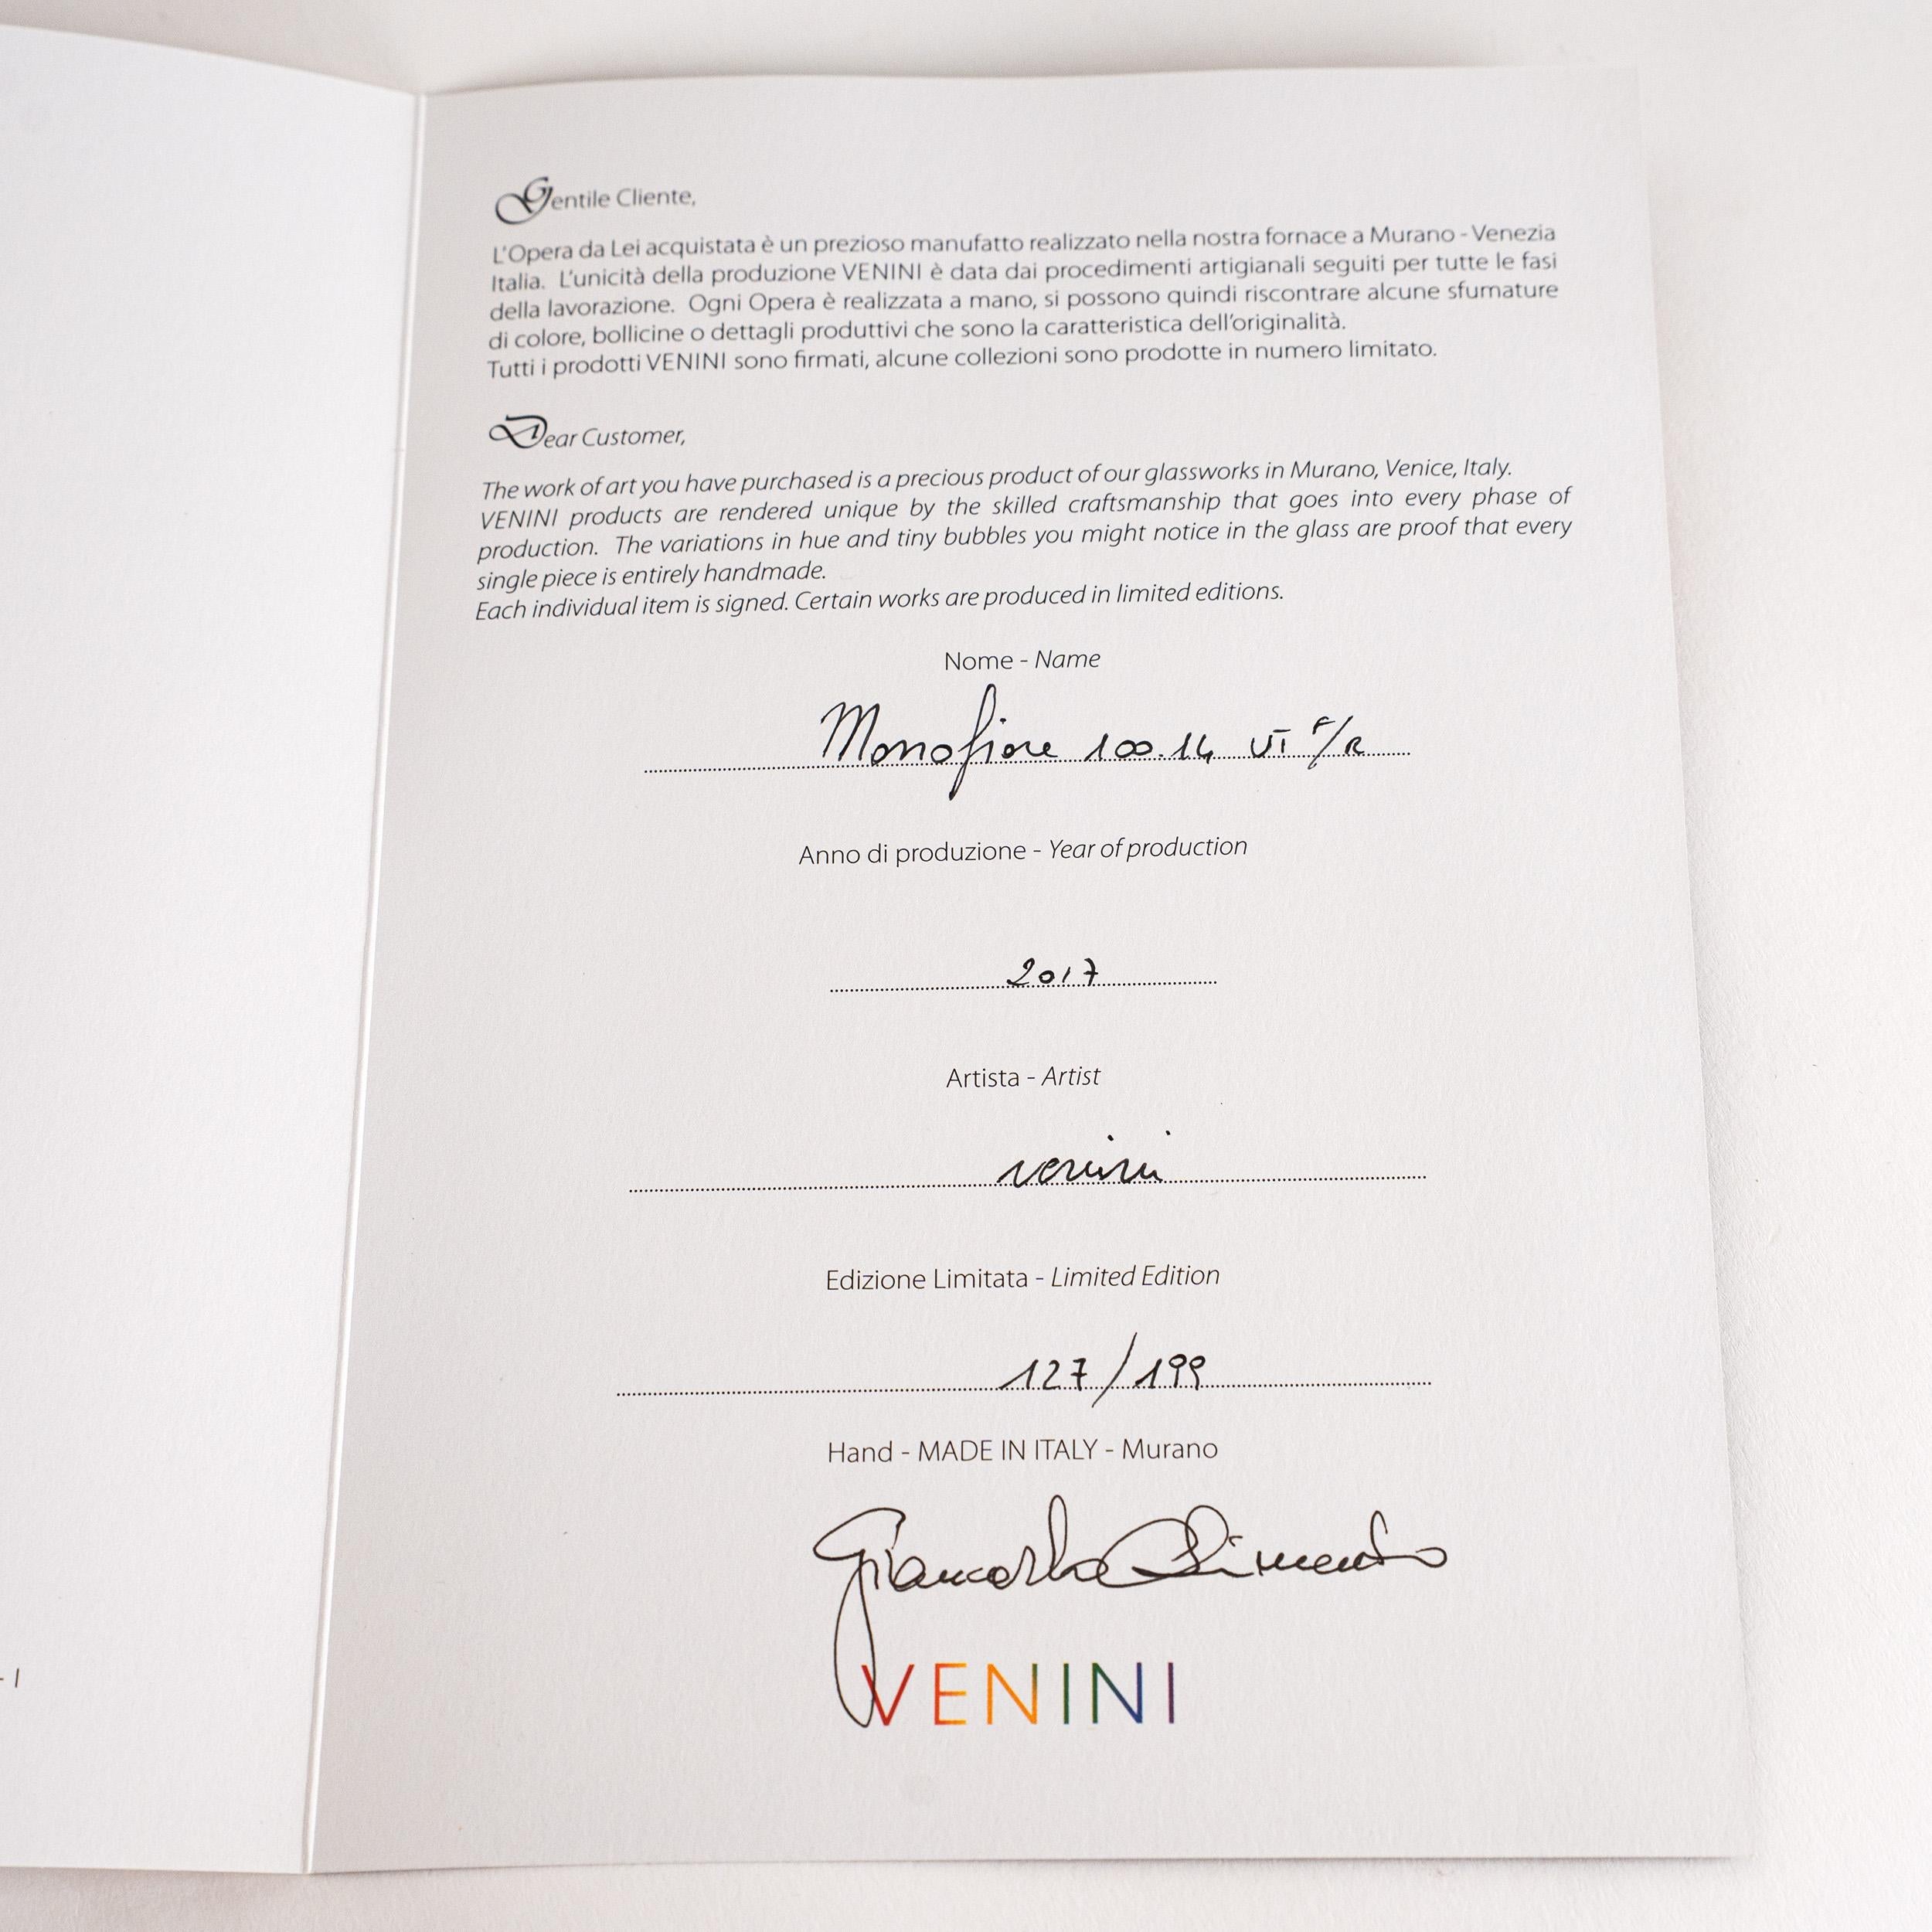 Gentile Cliente,
L'Opera da Lei acquistata è un prezioso manufatto realizzato nella nostra fornace a Murano - Venezia
Italia. L'unicità della produzione VENINI è data dai procedimenti artigianali seguiti per tutte le fasi
della lavorazione. Ogni Opera è realizzata a mano, si possono quindi riscontrare alcune sfumature
di colore, bollicine o dettagli produttivi che sono la caratteristica dell'originalità.
Tutti i prodotti VENINI sono firmati, alcune collezioni sono prodotte in numero limitato.
Dear Customer,
The work of art you have purchased is a precious product of our glassworks in Murano, Venice, Italy.
VENINI products are rendered unique by the skilled craftsmanship that goes into every phase of
production. The variations in hue and tiny bubbles you might notice in the glass are proof that every
single piece is entirely handmade.
Each individual item is signed. Certain works are produced in limited editions.
Nome - Name
Monofiore 100.14 VI F/R
Anno di produzione - Year of production
2017
Artista - Artist
venini
Edizione Limitata - Limited Edition
127/199
Hand - MADE IN ITALY - Murano
Giancarlo
VENINI